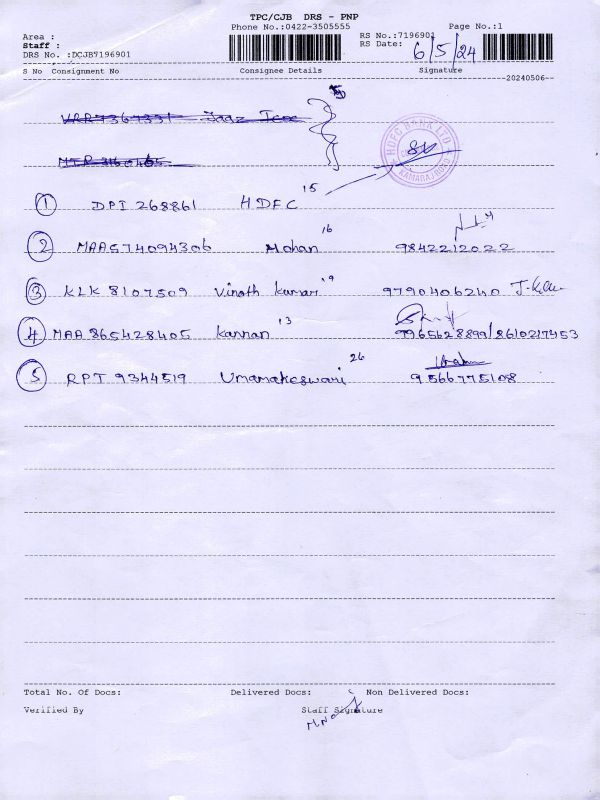 TPC/CJB DRS - PNP
Phone No.:0422-3505555 Page No.:1
Area : RS No.:7196901
Staff : RS Date: 6/5/24
DRS No. :DCJB7196901
S No Consignment No Consignee Details Signature
20240506
5
HDFC BANK LTD
KAMARAJ ROAD
15
1 DPI 268861 HDFC
16
2 MAA574094306 Mohan 9842212022
19
3 KLK 8107509 Vinoth kumar 9790406240
13
4 MAA 865428405 kannan 7965628899/8610217453
26
5 RPT 9344519 Umamaheswari 9566775108
Total No. Of Docs: Delivered Docs: Non Delivered Docs:
Verified By Staff Signature